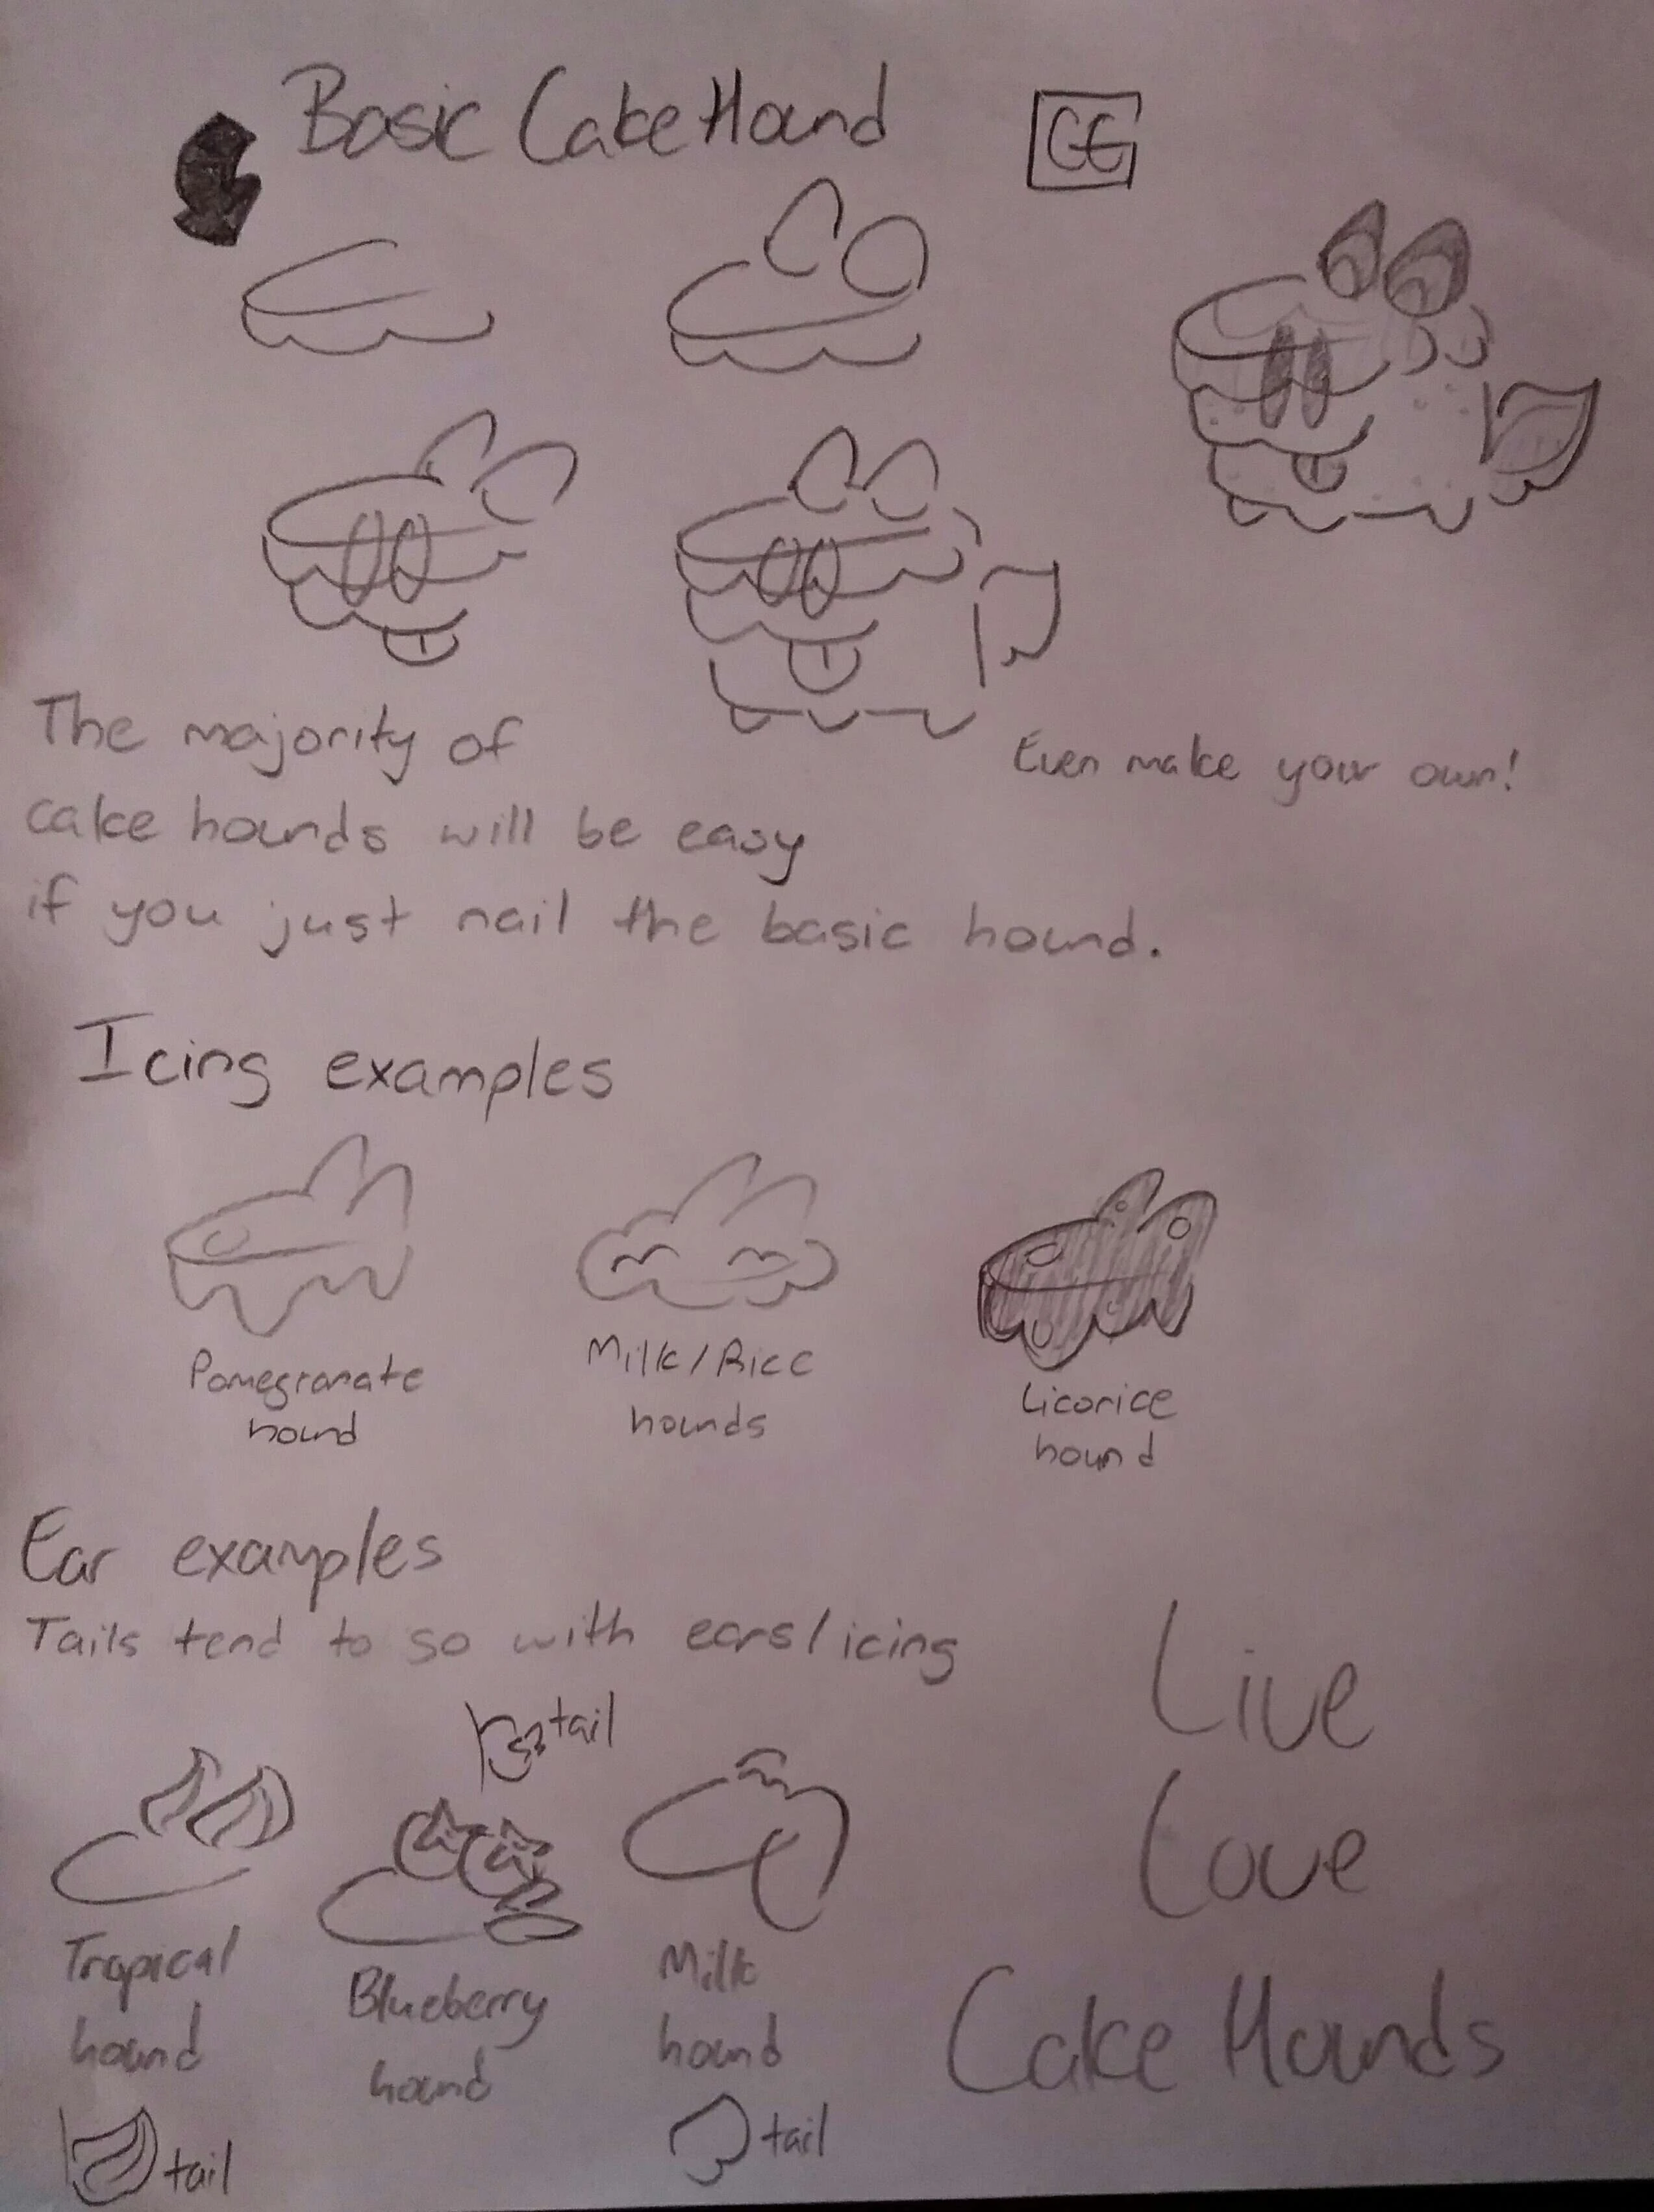 Basic Cake Hound
CE
The majority of
cake hounds will be easy
if you just nail the basic hound.
Even make your own!
Icing examples
Pomegranate
hound
Milk/Rice
hounds
Licorice
hound
Ear examples
Tails tend to so with ears/icing
tail
Tropical
hound
Blueberry
hound
Milk
hound
tail
tail
Live
Love
Cake Hounds